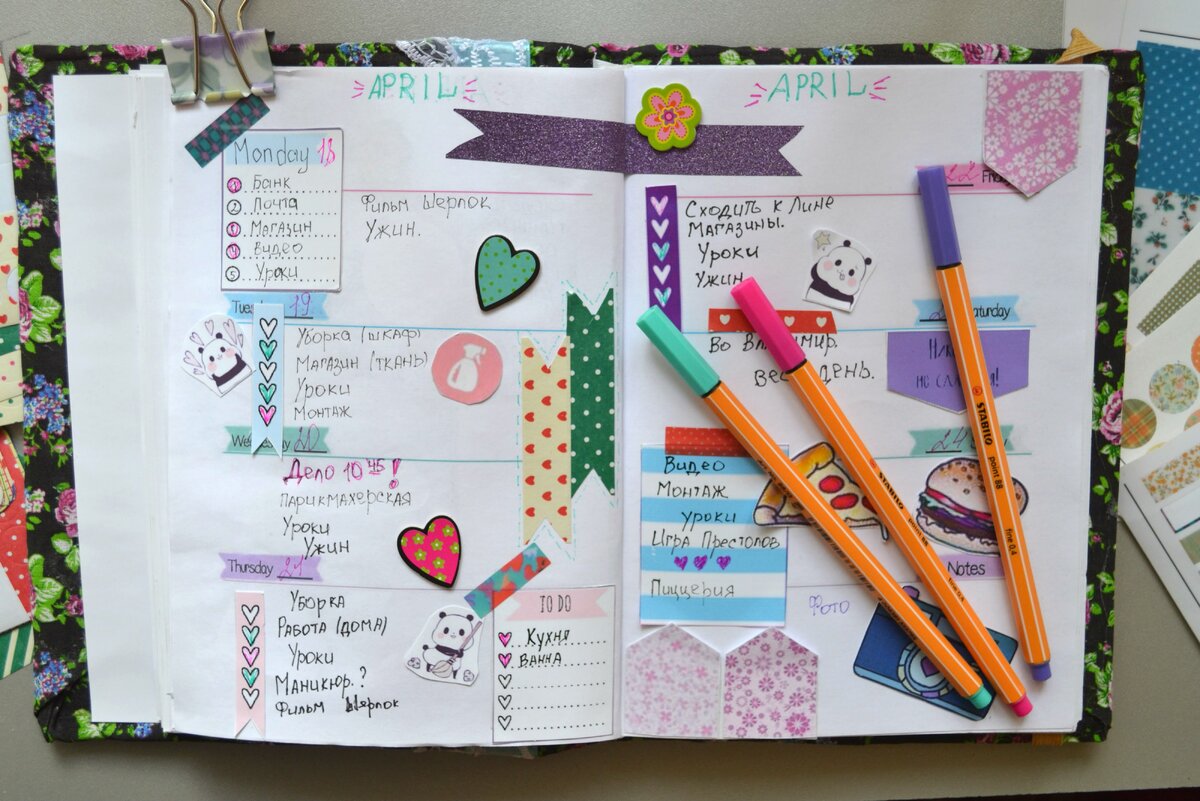 APRIL
Monday 18
1 Банк
2 Почта
3 Магазин
4 Видео
5 Уроки
Фильм Шерлок
Ужин.
19
Уборка (шкаф)
Магазин (ткань)
Уроки
Монтаж
20
Дело 10 45!
Парикмахерская
Уроки
Ужин
Thursday 21
Уборка
Работа (дома)
Уроки
Маникюр.?
Фильм Шерлок
TO DO
Кухня
Ванна
APRIL
22
Сходить к Лине
Магазины.
Уроки
Ужин
Во
день.
не
24
Видео
Монтаж
уроки
Игра Престолов
Пиццерия
Notes
Фото
STABILO point 88 fine 0.4
STABILO
STABILO